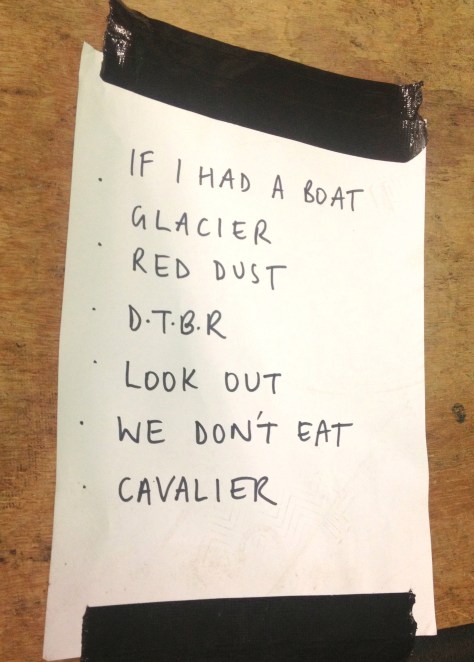 IF I HAD A BOAT
GLACIER
RED DUST
D.T.B.R
LOOK OUT
WE DON'T EAT
CAVALIER